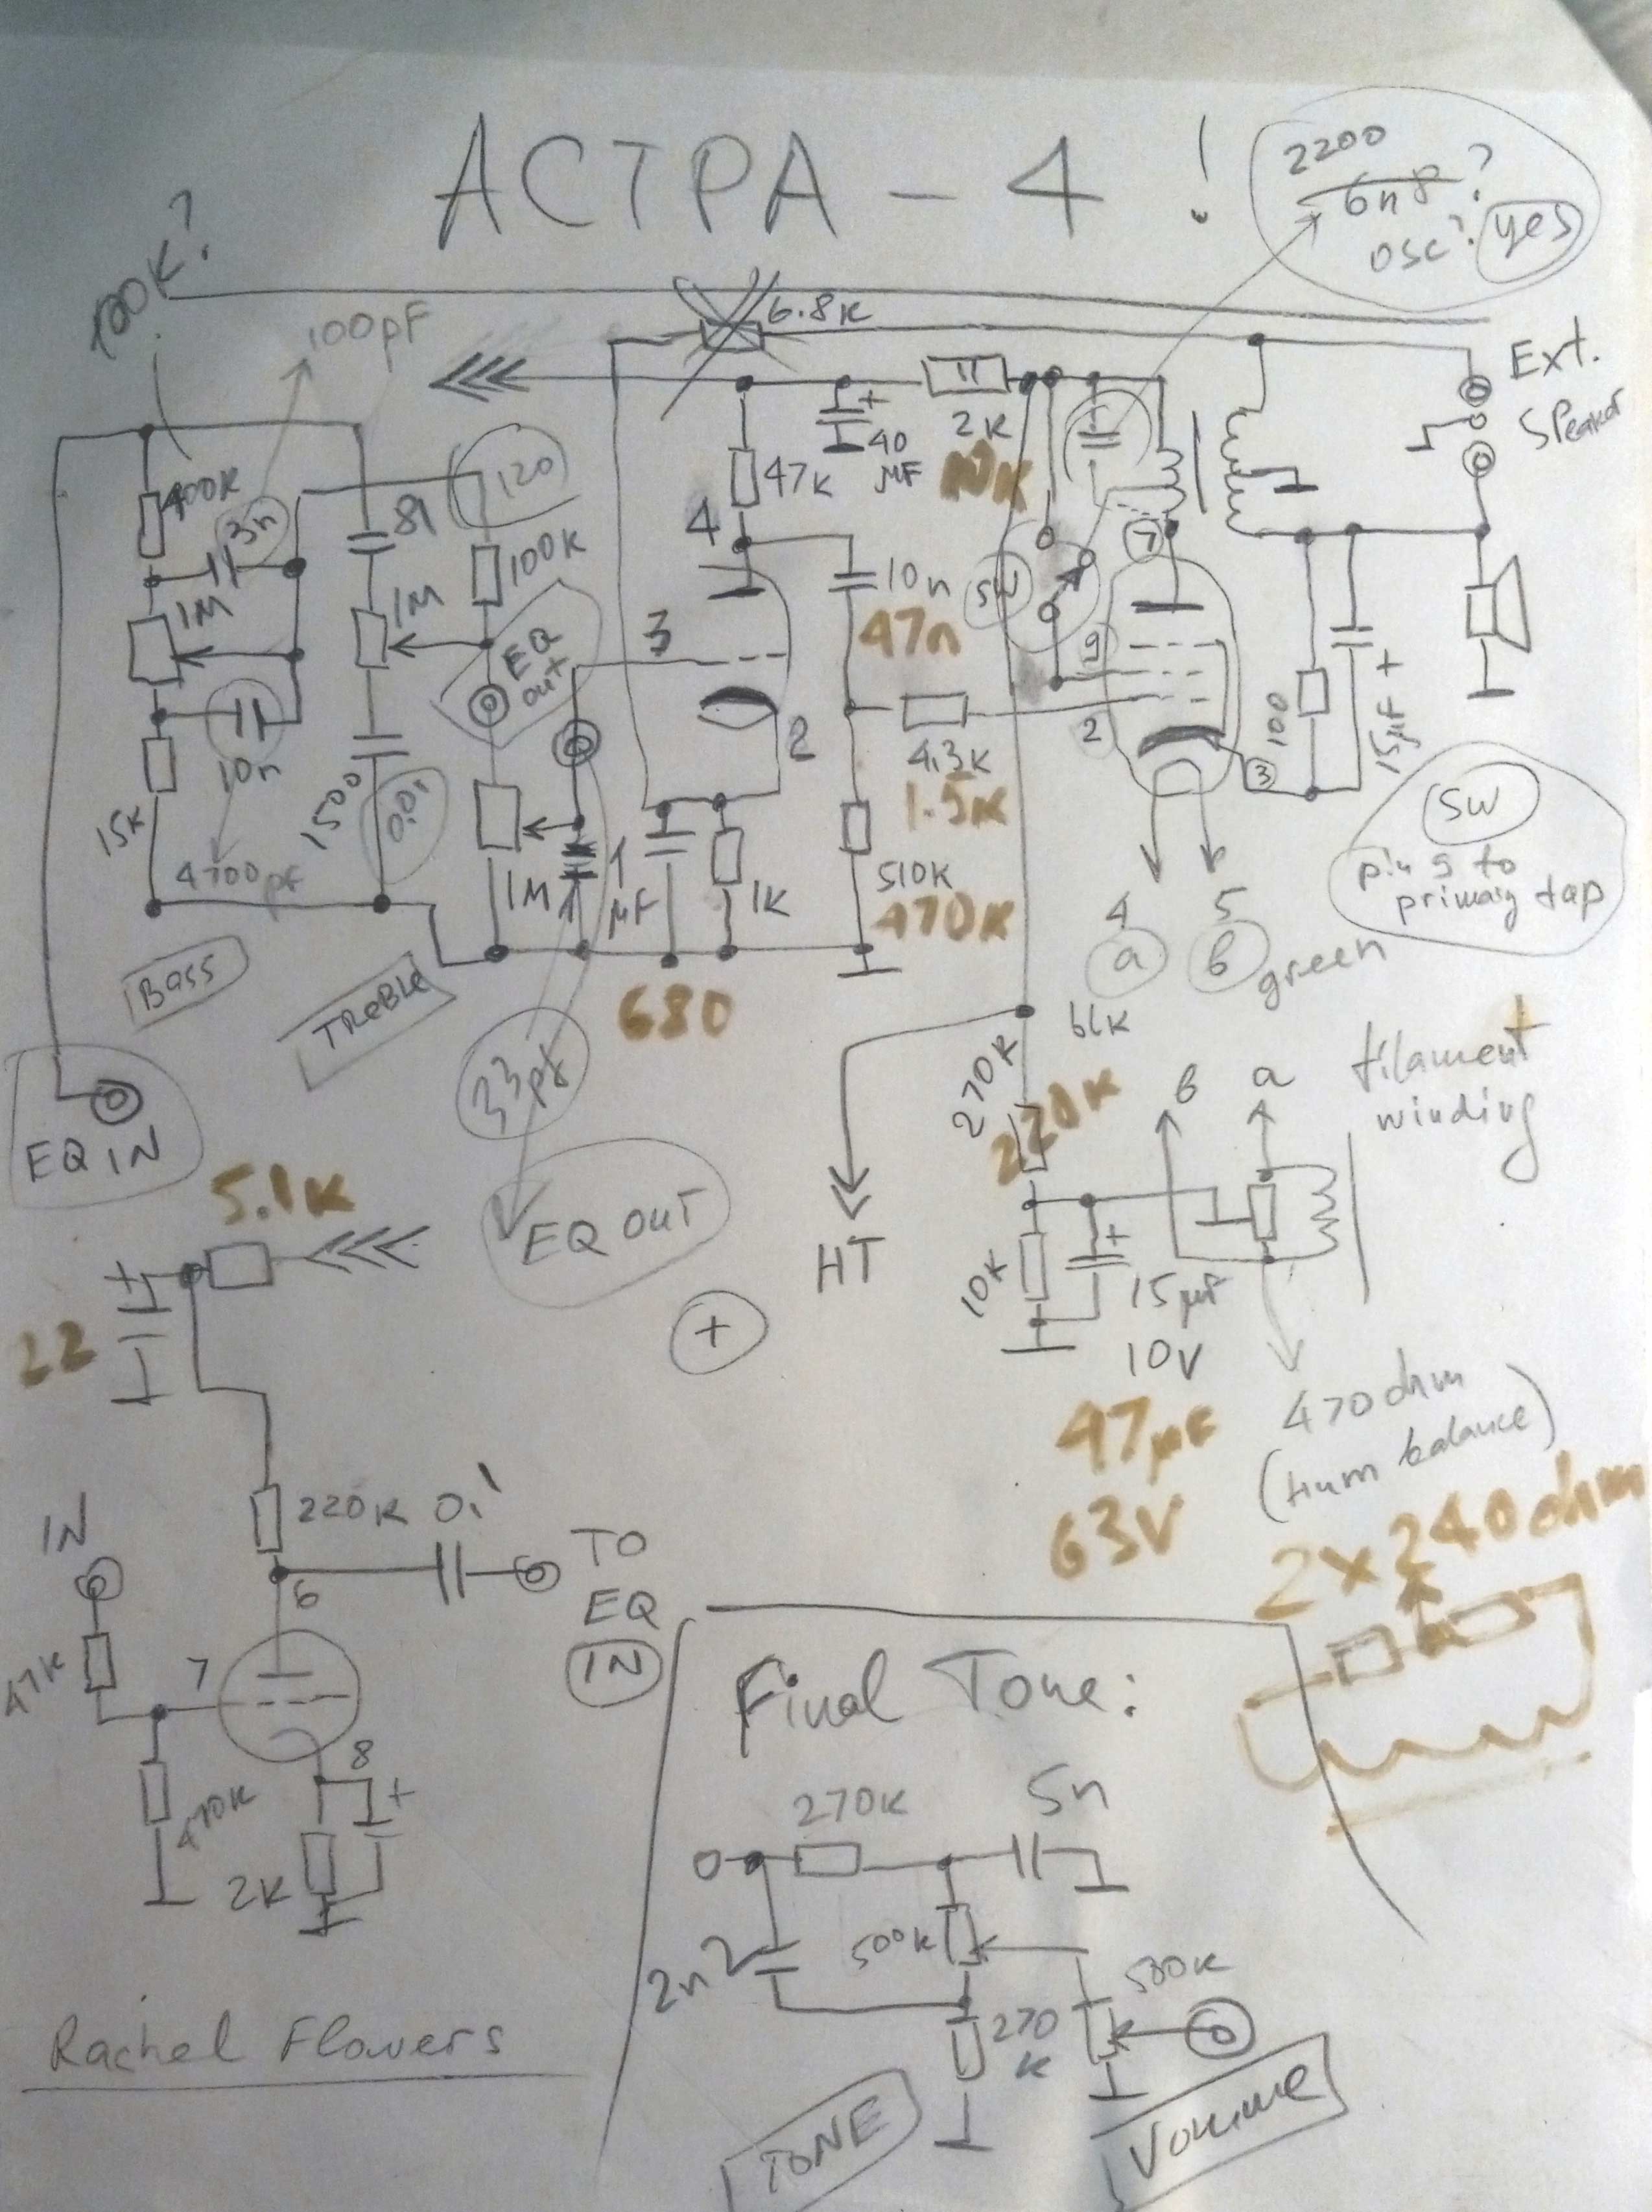 АСТРА - 4 !
2200
6n8?
osc? yes
100K?
100pF
6.8K
Ext.
Speaker
400K
3n
81
120
100K
1M
1M
EQ
out
10n
15K
1500
0.01
4700pF
Bass
TREBLE
EQ IN
47K
40
MF
2K
10K
4
3
2
10n
47n
4.3K
1.5K
510K
470K
1M
1
MF
1K
680
33pF
EQ OUT
SW
7
9
2
3
100
15µF +
SW
pin 9 to
primary tap
4 5
a б
green
blk
270K
220K
б a
filament
winding
HT
10K
+
15µF
10V
47µF
63V
470 ohm
(hum balance)
2 x 240 ohm
5.1K
+
22
+
220K
0.1
TO
EQ
IN
IN
47K
6
7
8
+
470K
2K
Rachel Flowers
Final Tone:
270K
5n
500K
2n2
500K
270
K
TONE
Volume